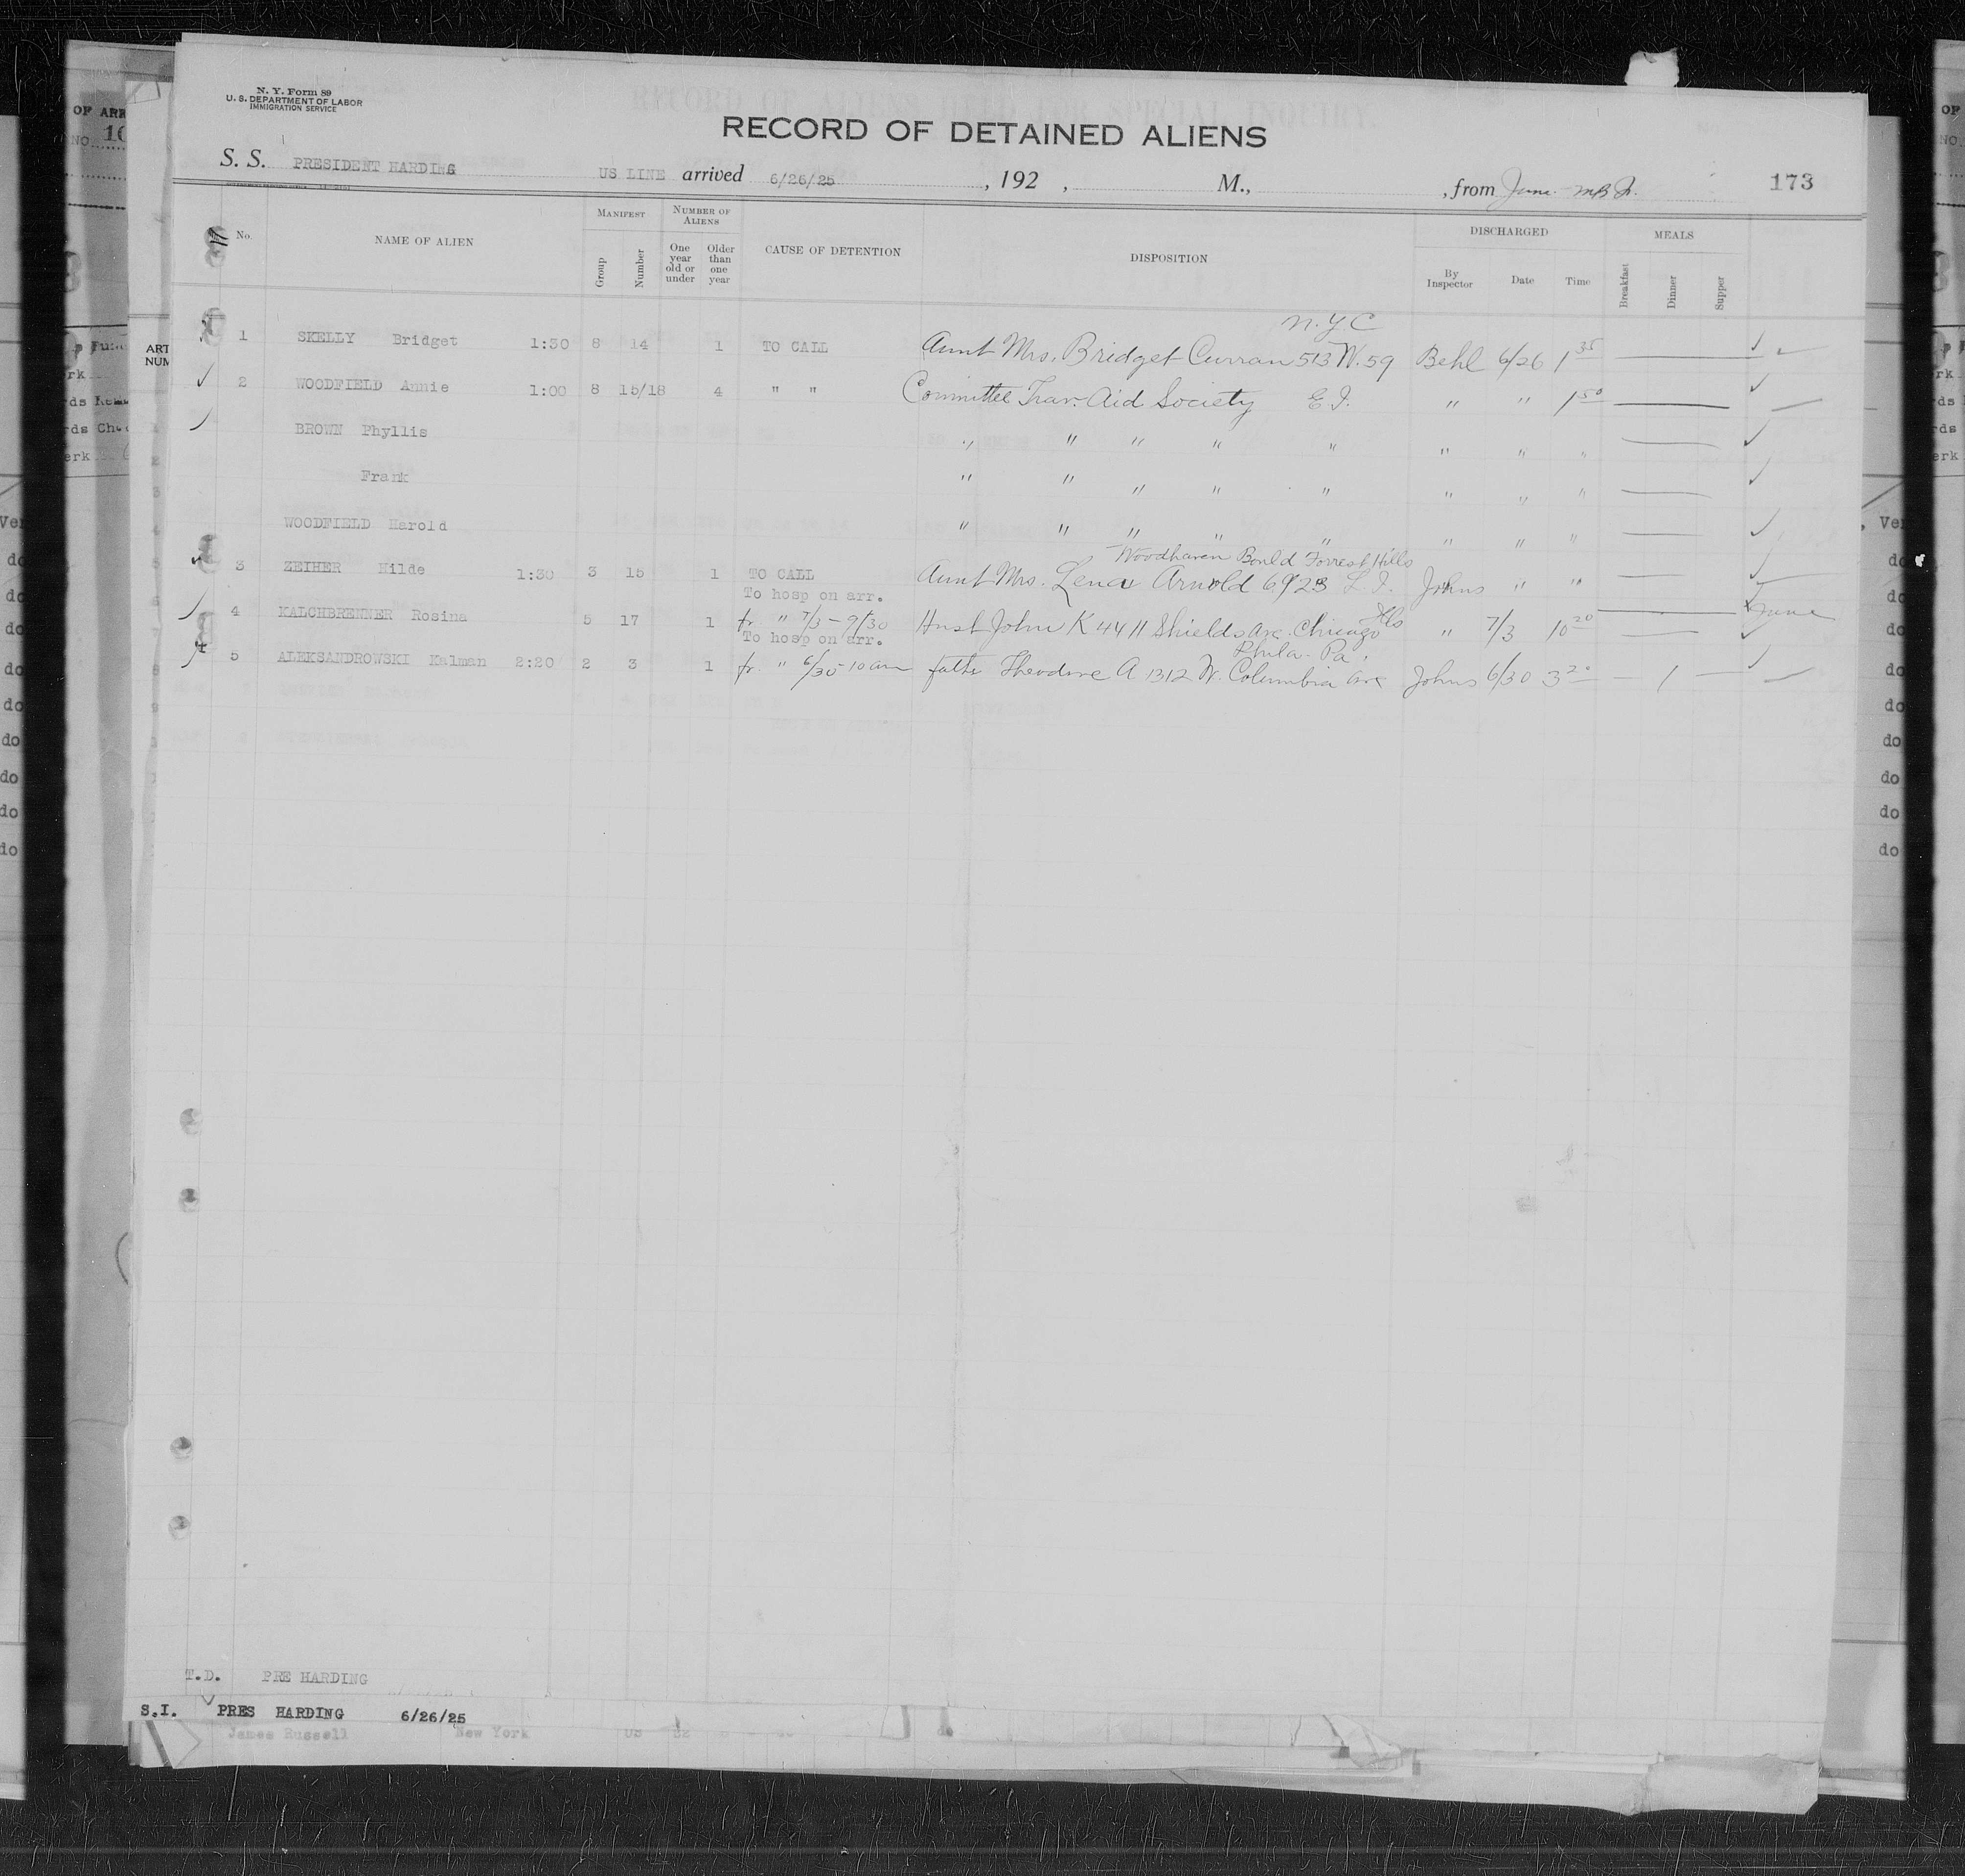 N. Y. Form 89
U. S. DEPARTMENT OF LABOR
IMMIGRATION SERVICE
RECORD OF DETAINED ALIENS
S. S. PRESIDENT HARDING US LINE arrived 6/26/25 , 192 , M., , from June 173
No. NAME OF ALIEN MANIFEST Group Number NUMBER OF ALIENS One year old or under Older than one year CAUSE OF DETENTION DISPOSITION DISCHARGED By Inspector Date Time MEALS Breakfast Dinner Supper
N.Y.C
1 SKELLY Bridget 1:30 8 14 1 TO CALL Aunt Mrs. Bridget Curran 513 W. 59 Behl 6/26 1 35
2 WOODFIELD Annie 1:00 8 15/18 4 " " Committee Trav. Aid Society E.I. " " 1 50
BROWN Phyllis " " " " " " " "
Frank " " " " " " " "
WOODFIELD Harold " " " " " " " "
Woodhaven Bould Forrest Hills
3 ZEIHER Hilde 1:30 3 15 1 TO CALL Aunt Mrs. Lena Arnold 6923 L.I. Johns " "
To hosp on arr.
4 KALCHBRENNER Rosina 5 17 1 fr. " 7/3 - 9/30 Husb John K 4411 Shields Ave. Chicago Ills " 7/3 10 20 June
To hosp on arr. Phila. Pa.
5 ALEKSANDROWSKI Kalman 2:20 2 3 1 fr. " 6/30 - 10 am fath Theodore A 1312 W. Columbia ave Johns 6/30 3 20 1
T.D. PRE HARDING
S.I. PRES HARDING 6/26/25
James Russell New York US